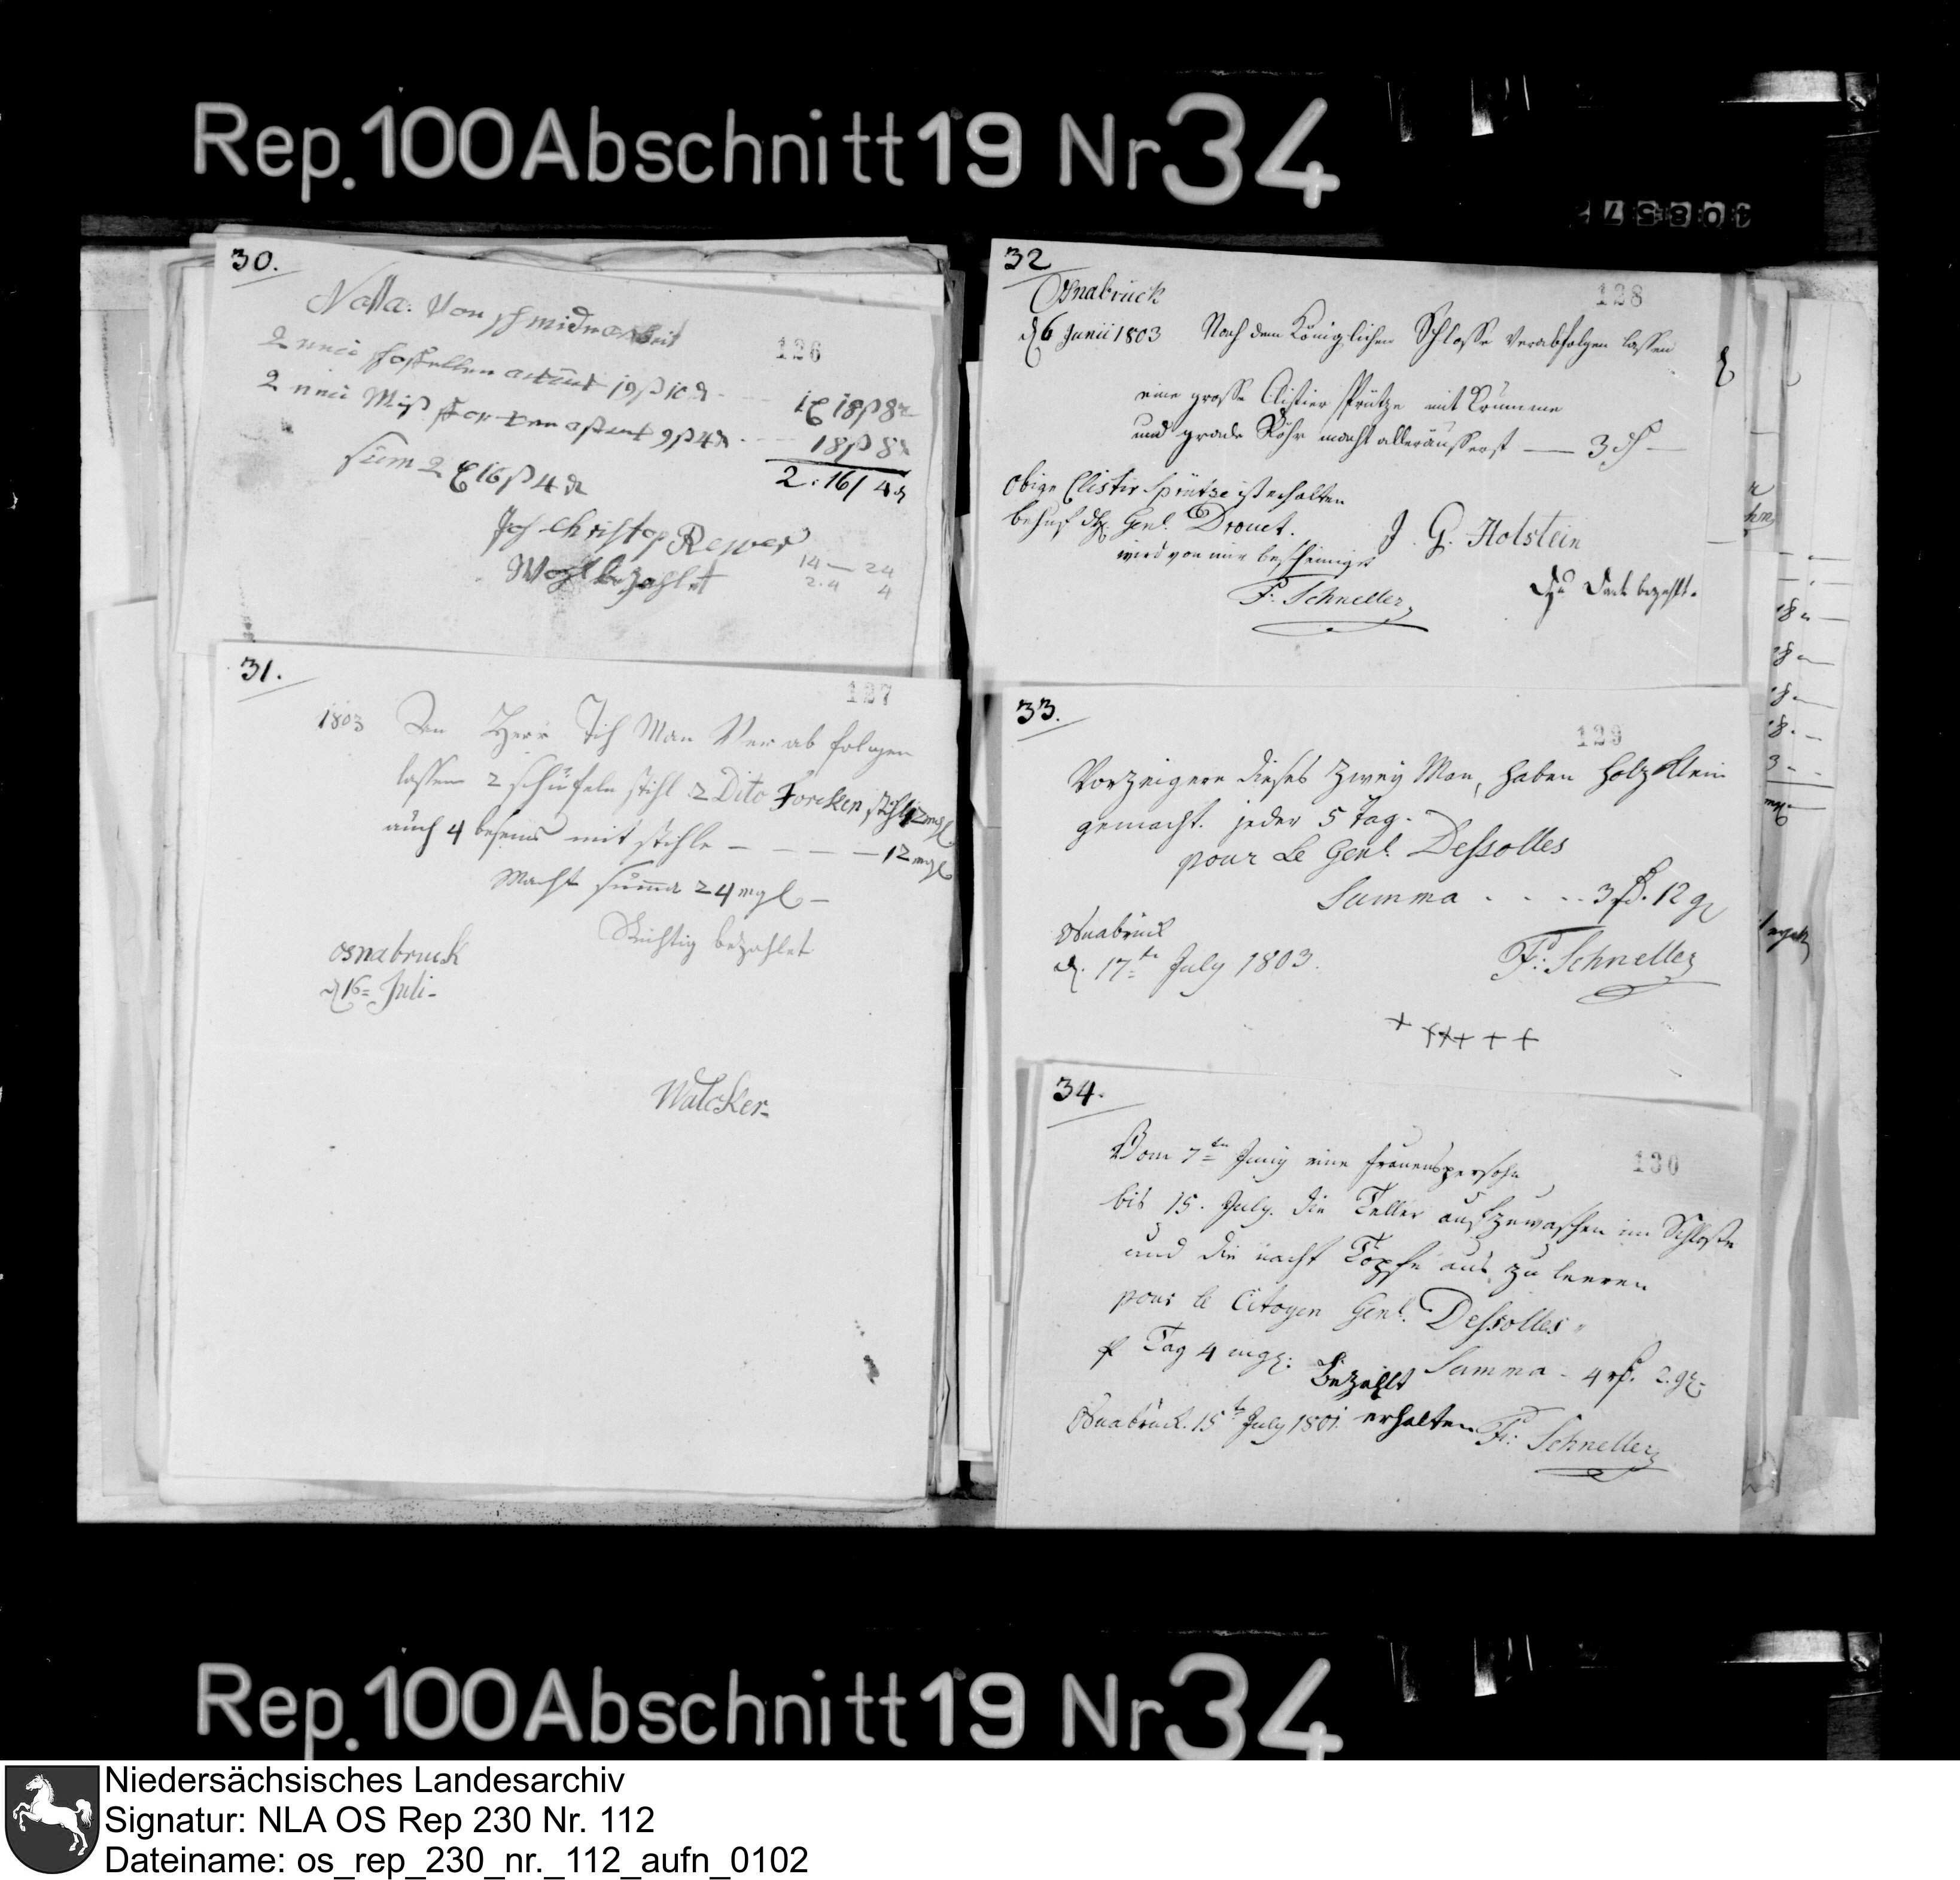 Rep. 100 Abschnitt 19 Nr 34
30.
126
Notta: Von schmidnarbeit
2 neue schoßellen astünt 19ß 10₰ 1 18ß 8
2 neue Miß forcken astunt 9ß 4₰ 18ß 8
2:16/4₰
Sum 2 16ß 4₰
Joh Christop Rewer
Wohl bezahlet
14 — 24
2.4 4
31.
127
1803 An Herr Tischman Verabfolgen
lassen 2 schüfeln stihl 2 Dito Forcken stihl 12 mgl
auch 4 besems mit stihle — — — — 12 mgl
Macht suma 24 mgl —
Richtig bezahlet
osnabruck
d 16= Juli-
Walcker-
32
128
Osnabrück
d 6 Junii 1803 Nach dem Königlichen Schlosse Verabfolgen lassen
eine grosse Clistier Sprütze mit Krumme
und grade Röhr macht alleräusserst — 3 —
Obige Clistir Sprütze ist erhalten
behuf Genl. Drouet.
wird von mir bescheiniget
F: Schneller
J. G. Holstein
Zu Dank bezahlt.
33.
129
Vorzeigere dieses zwey Man, haben holz klein
gemacht. jeder 5 Tag.
pour Le Genl. Dessolles
Summa . . . . 3 . 12 g
Osnabrück
d. 17ten July 1803.
F: Schneller
+ + + + + +
34.
130
Vom 7ten Juny eine frauenspersohn
bis 15. July. die Teller auszuwaschen im Schlosse
und die nacht Töpfe aus zu leeren
pour le Citoyen Genl. Dessolles
Tag 4 mgr: Bezahlt Summa - 4 . 2 gr.
Osnabrück. 15ten July 1801. erhalten F: Schneller
Rep. 100 Abschnitt 19 Nr 34
Niedersächsisches Landesarchiv
Signatur: NLA OS Rep 230 Nr. 112
Dateiname: os_rep_230_nr._112_aufn_0102